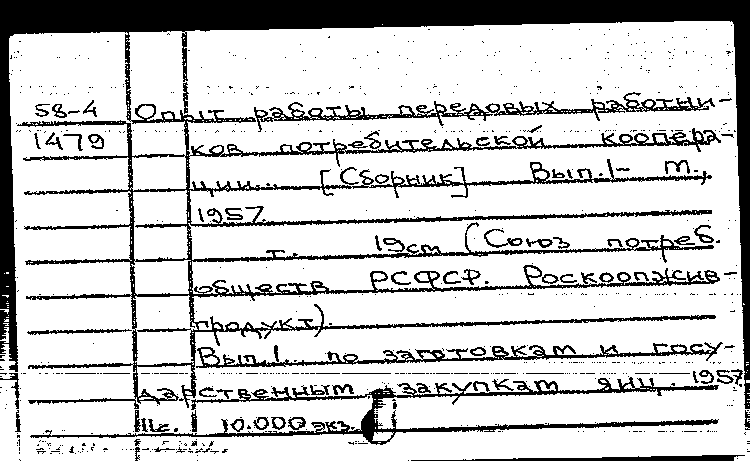 58-4 Опыт работы передовых работни-
1479 ков потребительской коопера-
ции... [Сборник] Вып. I- М.,
1957
т. 19см (Союз потреб.
обществ РСФСР. Роскоопжив-
продукт).
Вып. I. по заготовкам и госу-
дарственным закупкам яиц. 1957
11с. 10.000 экз.